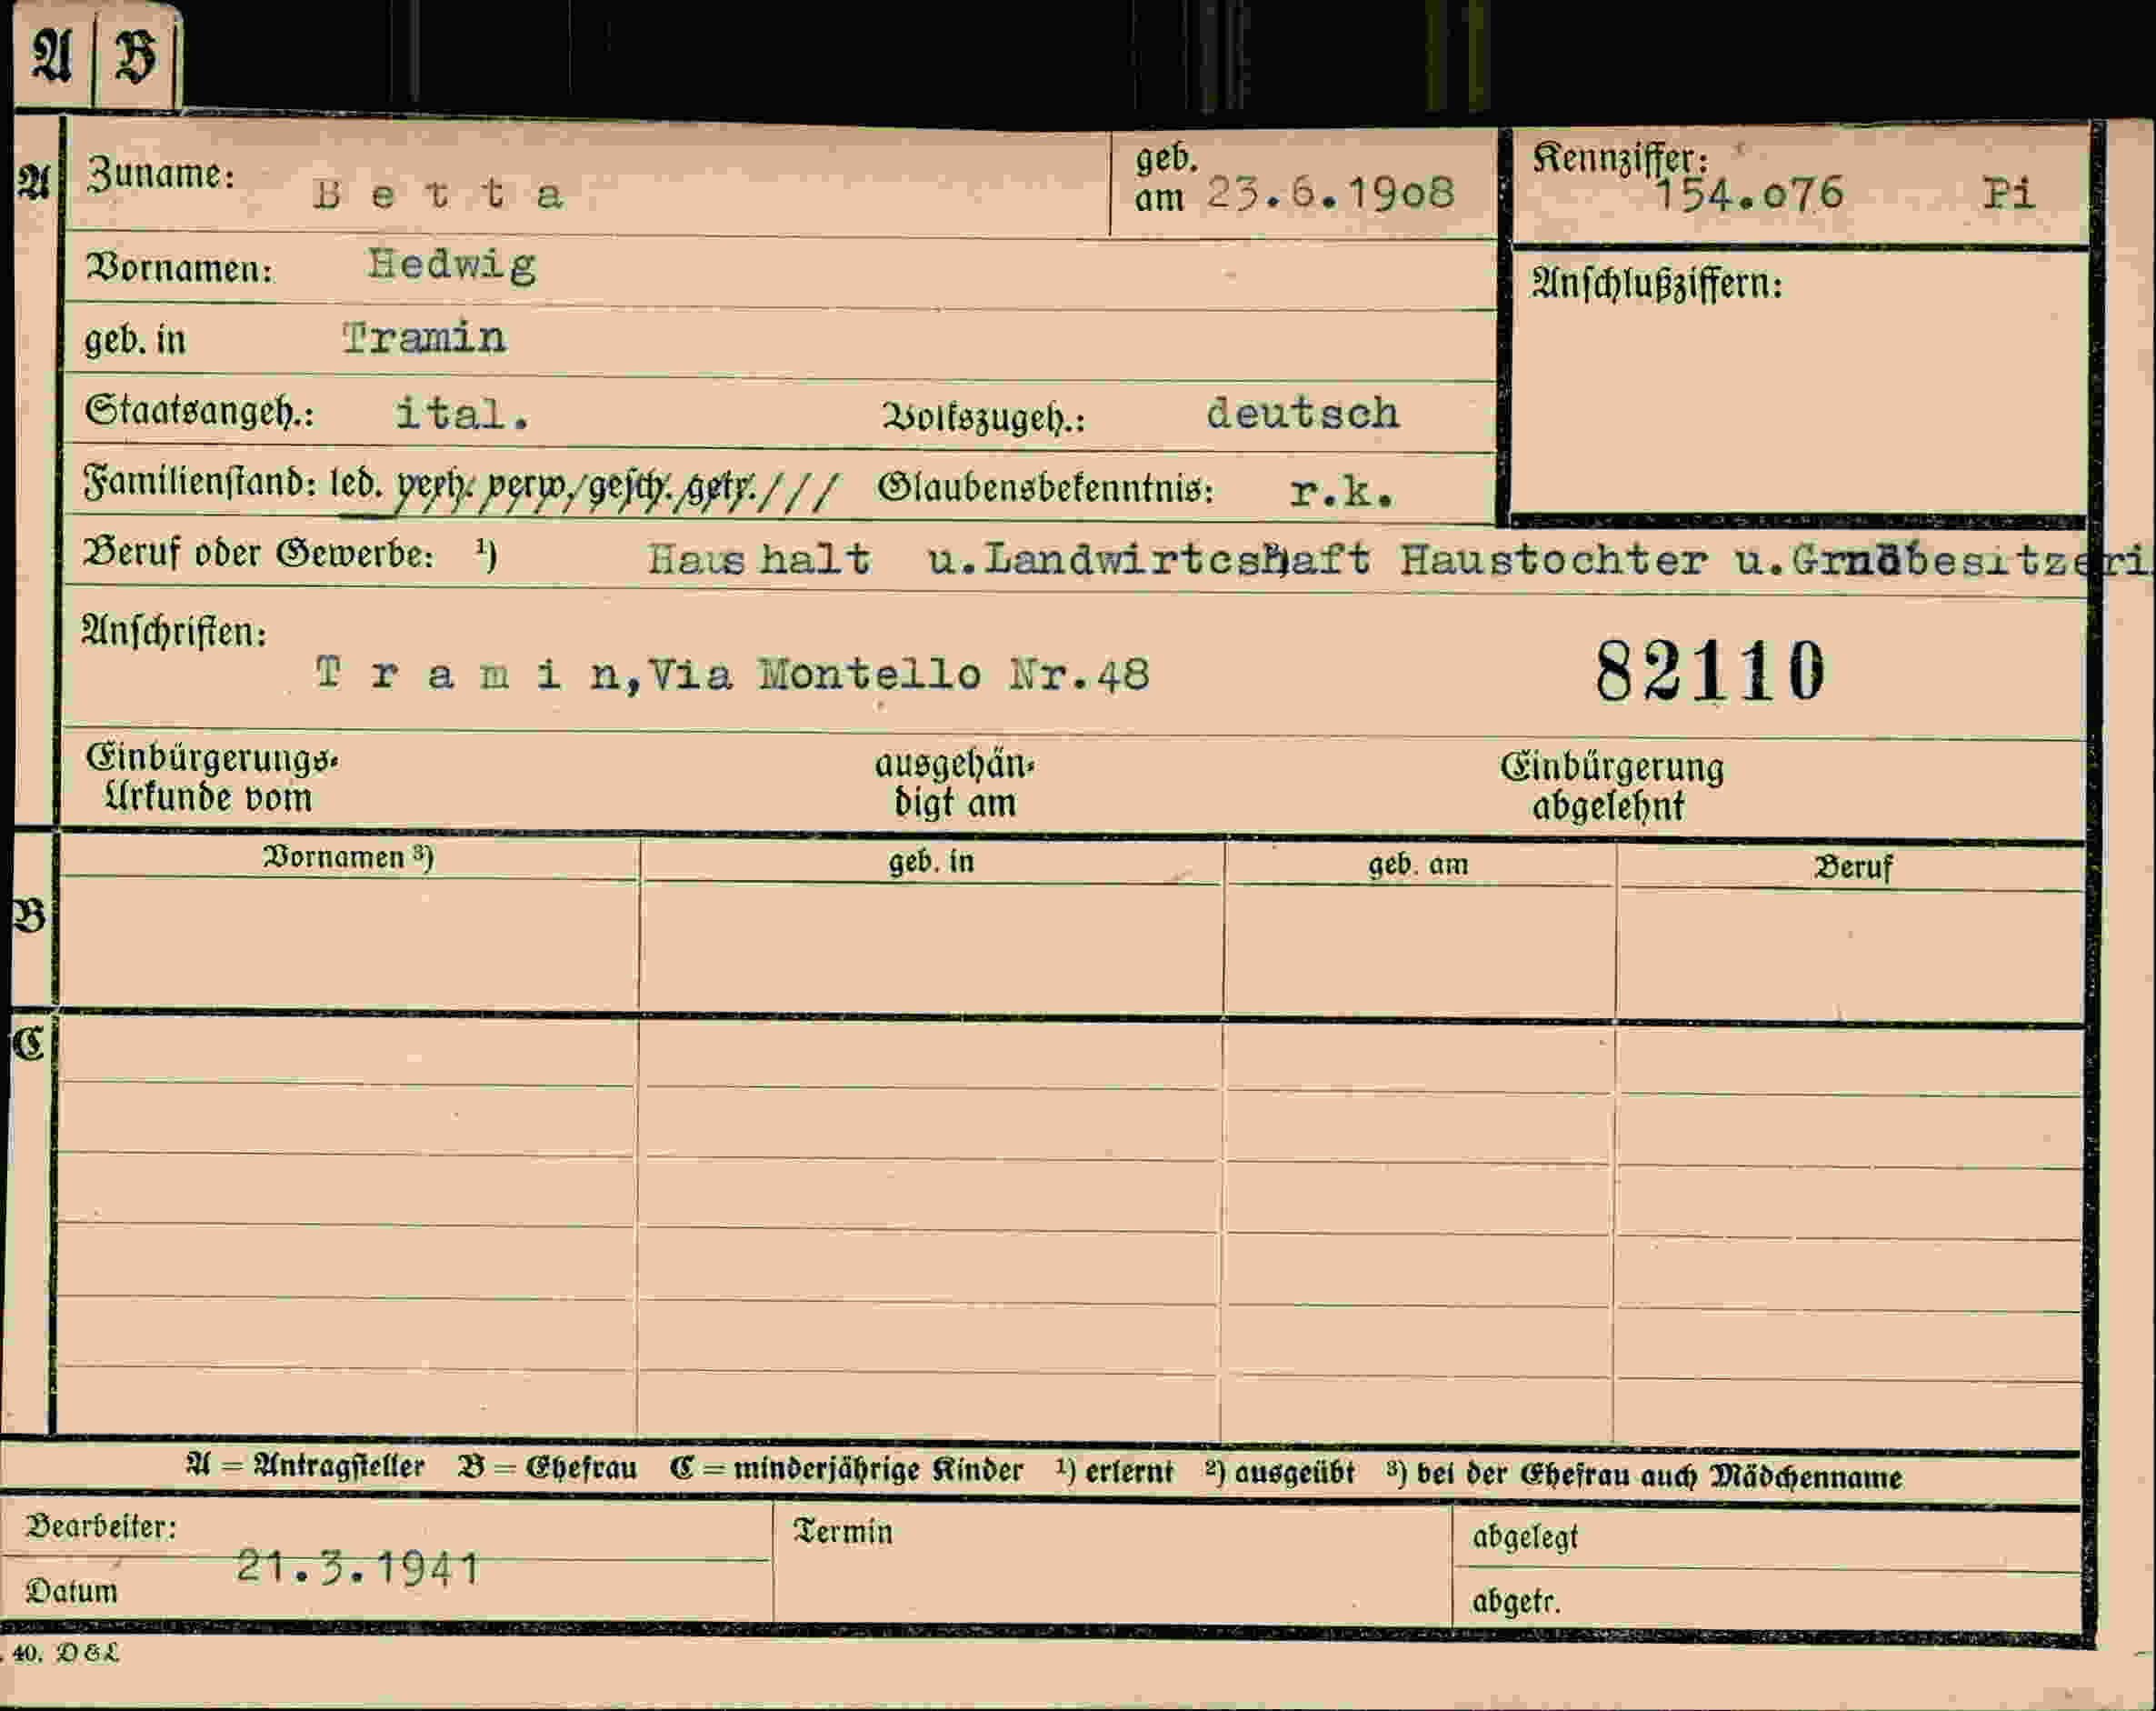 A B
A Zuname: Betta geb. am 23.6.1908 Kennziffer: 154.076 Pi
Vornamen: Hedwig Anschlußziffern:
geb. in Tramin
Staatsangeh.: ital. Volkszugeh.: deutsch
Familienstand: led. verh. verw. gesch. getr./// Glaubensbekenntnis: r.k.
Beruf oder Gewerbe: ¹) Haushalt u.Landwirtcshaft Haustochter u.Grndbesitzeri
Anschriften:
Tramin,Via Montello Nr.48 82110
Einbürgerungs-Urkunde vom ausgehändigt am Einbürgerung abgelehnt
Vornamen ³) geb. in geb. am Beruf
B
C
A = Antragsteller B = Ehefrau C = minderjährige Kinder ¹) erlernt ²) ausgeübt ³) bei der Ehefrau auch Mädchenname
Bearbeiter: Termin abgelegt
Datum 21.3.1941 abgetr.
. 40. D & L